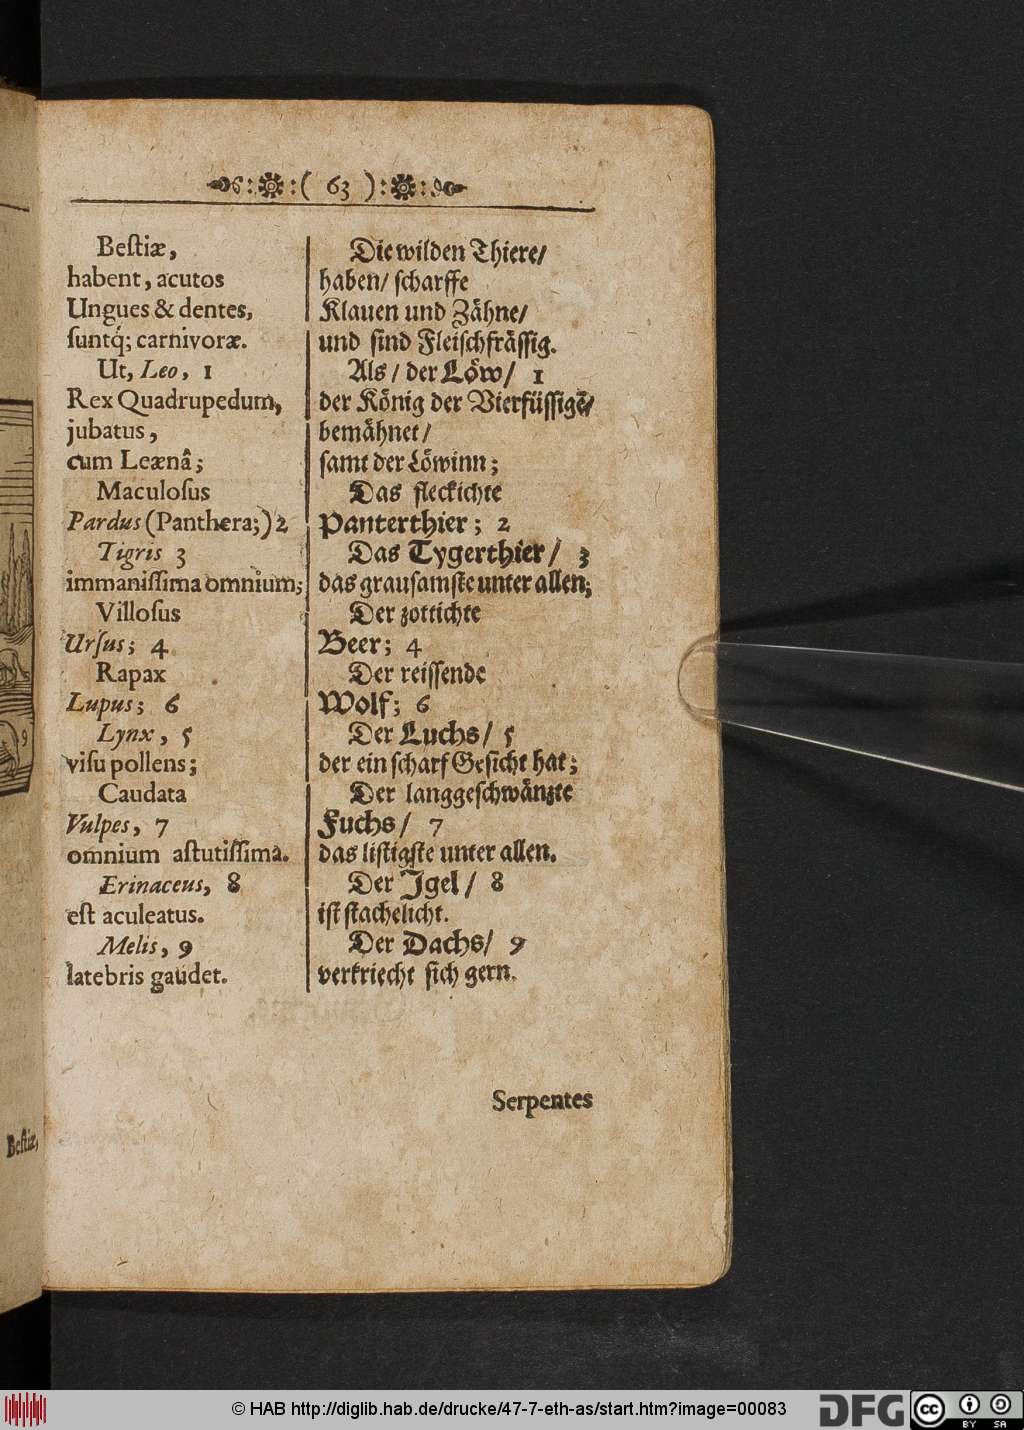 ( 63 )
Bestiæ,
habent, acutos
Ungues & dentes,
suntq́; carnivoræ.
Ut, Leo, 1
Rex Quadrupedum,
jubatus,
cum Leænâ;
Maculosus
Pardus (Panthera;) 2
Tigris 3
immanissima omnium;
Villosus
Ursus; 4
Rapax
Lupus; 6
Lynx, 5
visu pollens;
Caudata
Vulpes, 7
omnium astutissima.
Erinaceus, 8
est aculeatus.
Melis, 9
latebris gaudet.
Die wilden Thiere/
haben/ scharffe
Klauen und Zähne/
und sind Fleischfrässig.
Als/ der Löw/ 1
der König der Vierfüssigē/
bemähnet/
samt der Löwinn;
Das fleckichte
Panterthier; 2
Das Tygerthier/ 3
das grausamste unter allen;
Der zottichte
Beer; 4
Der reissende
Wolf; 6
Der Luchs/ 5
der ein scharf Gesicht hat;
Der langgeschwänzte
Fuchs/ 7
das listigste unter allen.
Der Igel/ 8
ist stachelicht.
Der Dachs/ 9
verkriecht sich gern.
Serpentes
Bestiæ,
9
© HAB http://diglib.hab.de/drucke/47-7-eth-as/start.htm?image=00083
DFG
cc BY SA